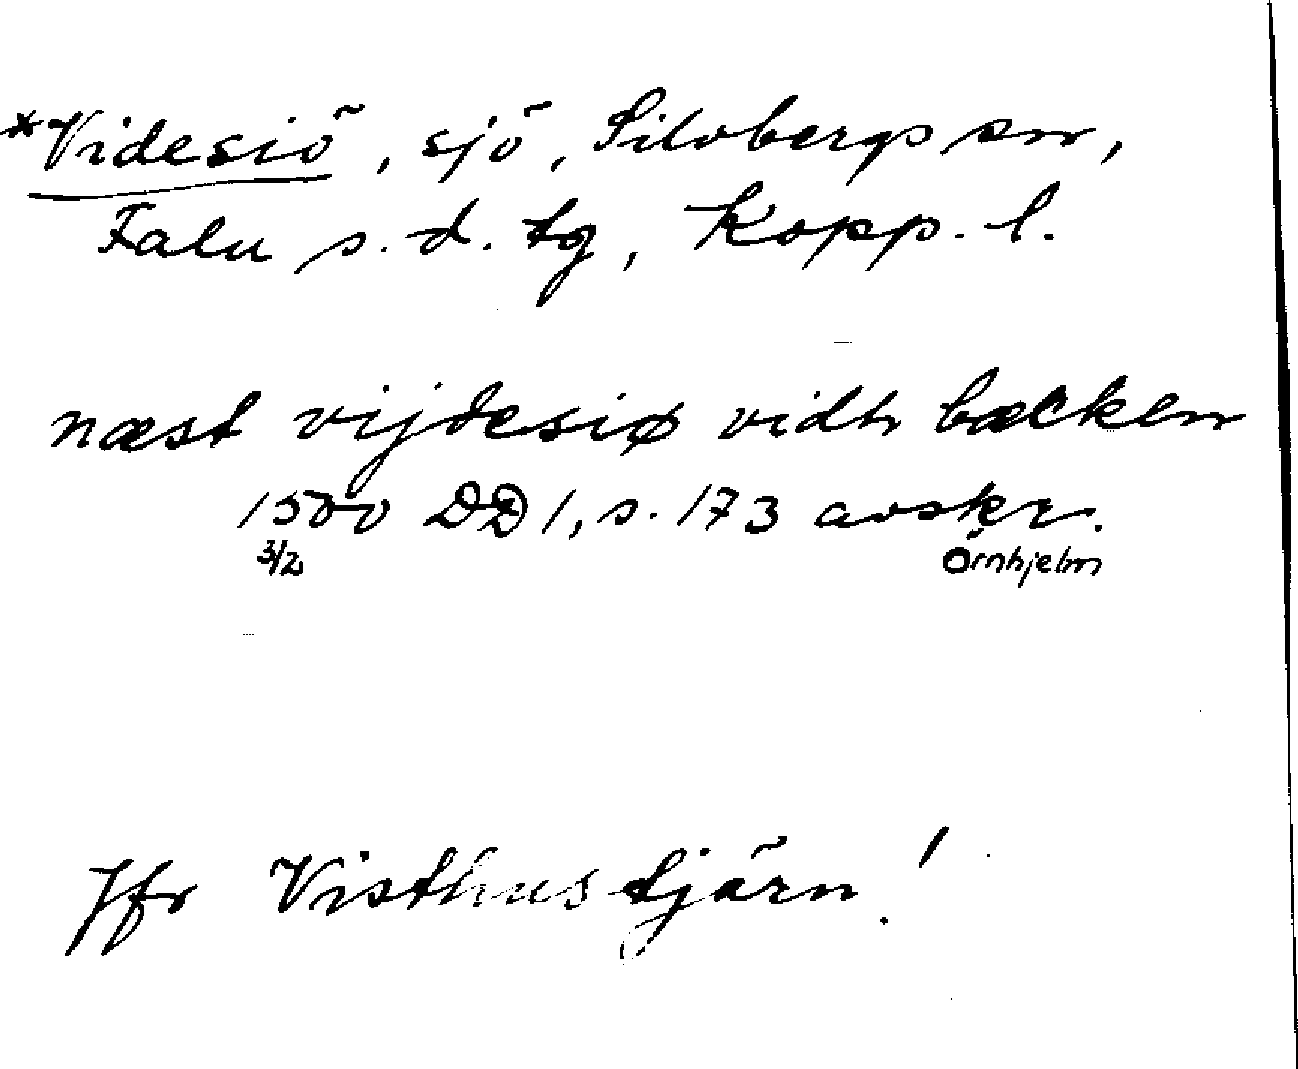 *Videsiö, sjö, Silvbergs sn,
Falu s.d. tg, Kopp. l.
næst vijdesiø vidh bæcken
1500 DD 1, s. 173 avskr.
3/2 Örnhjelm
Jfr Visthustjärn!